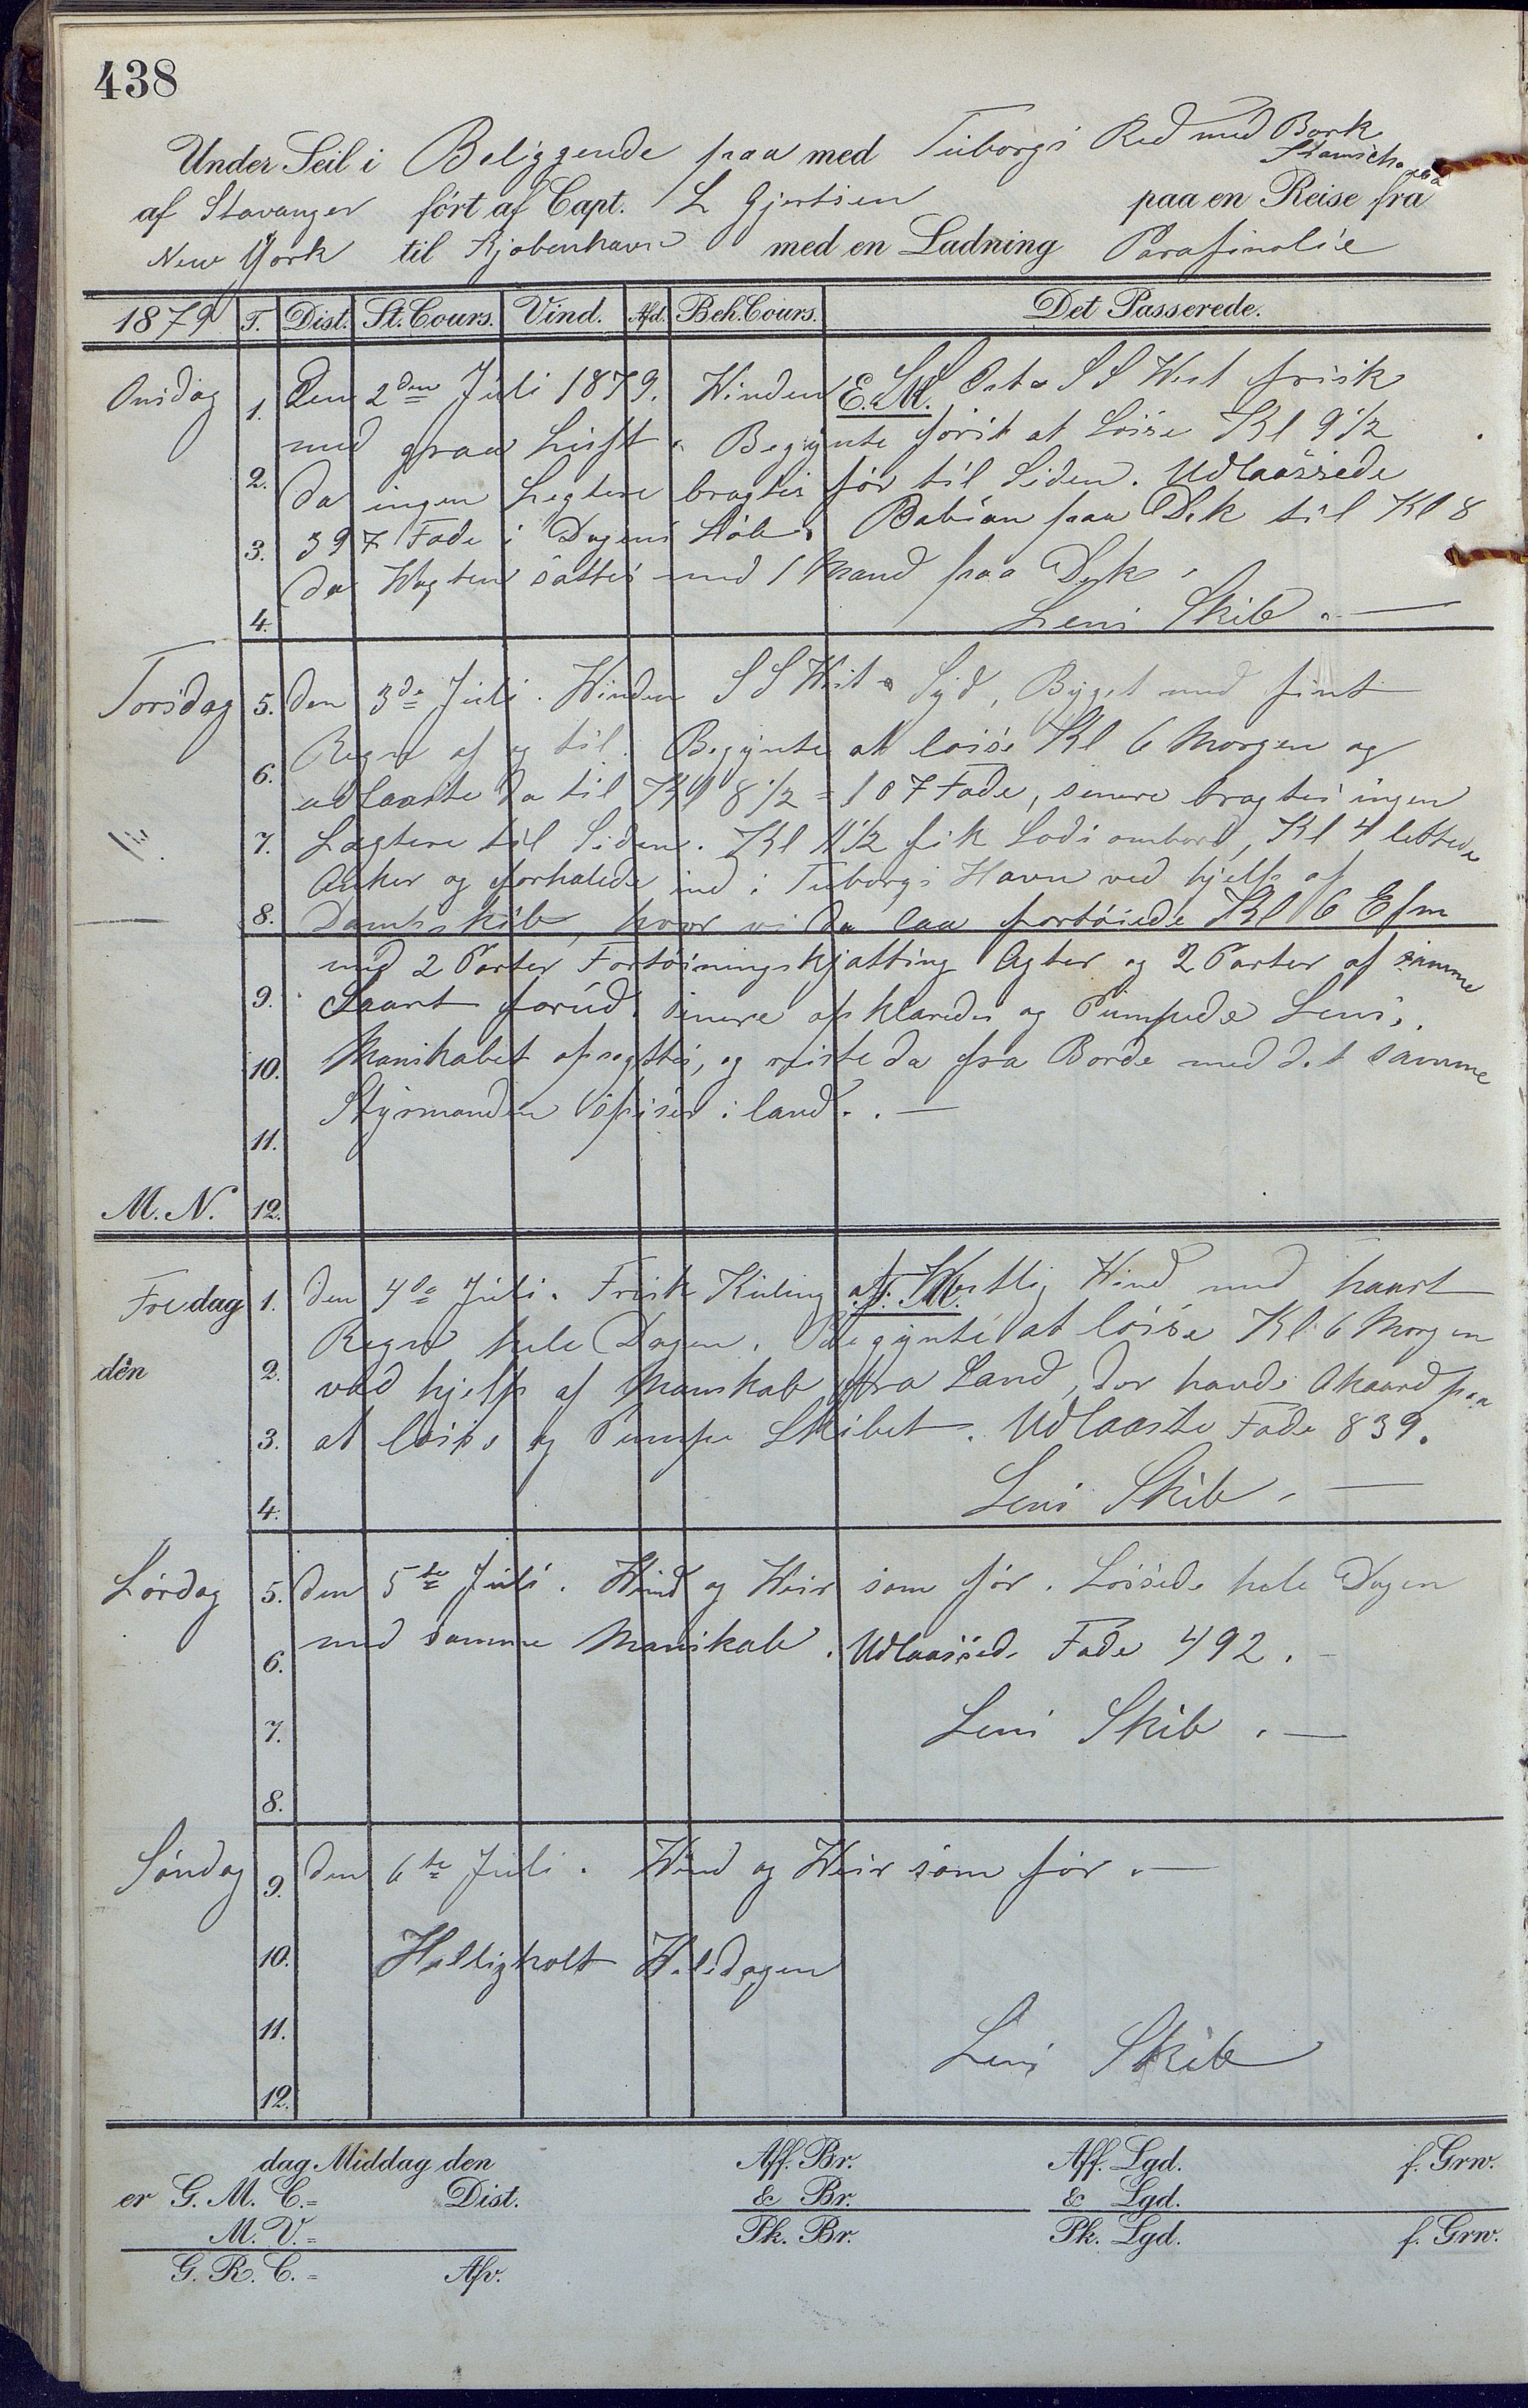 438
Under Seil i Beliggende paa med Tuborgs Red med Bark
af Stavanger ført af Capt. L Gjertsen paa en Reise fra
New York til Kjøbenhavn med en Ladning Parafinolie
1879 T. Dist. St. Cours. Vind. Afd. Beh. Cours. Det Passerede.
E. M.
Onsdag 1. Den 2den Juli 1879. Winden S Ost a SS West frisk
med graa Luft. Begynte först at Losse Kl 9 1/2
2. da ingen Legtere bragtes för til Siden. Udlaassede
3. 397 Fade i Dagens Löb. Babian paa Dek til Kl 8
da Wagten sattes med 1 Mand paa Dek.
4. Lens Skib. —
Torsdag 5. den 3de Juli. Winden SS West a Syd, Byget med fint
6. Regn af og til. Begynte at losse Kl 6 Morgen og
udlaaste da til Kl 8 1/2 = 107 Fade, senere bragtes ingen
7. Lægtere til Siden. Kl 11 1/2 fik Lods ombord, Kl 4 lettede
Anker og forhalede ind i Tuborgs Havn ved hjelp af
8. Dampskib, hvor vi da laa fortöiede Kl 6 Efm
med 2 Parter Fortöiningskjatting Agter og 2 Parter af samme
9. Slaart forud. Senere opklaredes og Pumpede Lens.
10. Manskabet afsagttes, og reiste da fra Borde med det samme
Styrmanden spiser i land. —
11.
M. N. 12.
F. M.
Fredag 1. den 4de Juli. Frisk Kuling af Westlig Wind med haart
Regn hele Dagen. Begynte at lösse Kl 6 Morgen
den 2. ved hjelp af Manskab fra Land, der havde Akaard paa
3. at losse og Pumpe Skibet. Udlaaste Fade 839.
4. Lens Skib. —
Lørdag 5. den 5te Juli. Wind og Weir som för. Lossede hele Dagen
6. med samme Manskab. Udlaassede Fade 492. -
7. Lens Skib. —
8.
Søndag 9. den 6te Juli. Wind og Weir som för. —
10. Helligholt Heledagen
11. Lens Skib
12.
dag Middag den Aff. Br. Aff. Lgd. f. Grw.
er G. M. C. = Dist. & Br. & Lgd.
M. V. = Pk. Br. Pk. Lgd. f. Grw.
G. R. C. = Afv.